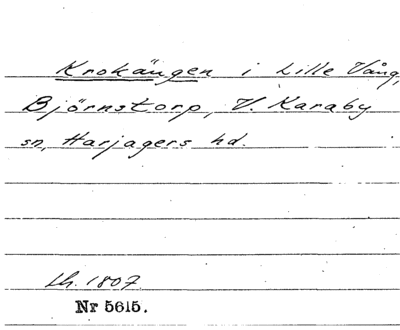 Krokängen i Lille Vång,
Björnstorp, V. Karaby
sn, Harjagers hd.
Lh. 1807
Nr 5615.